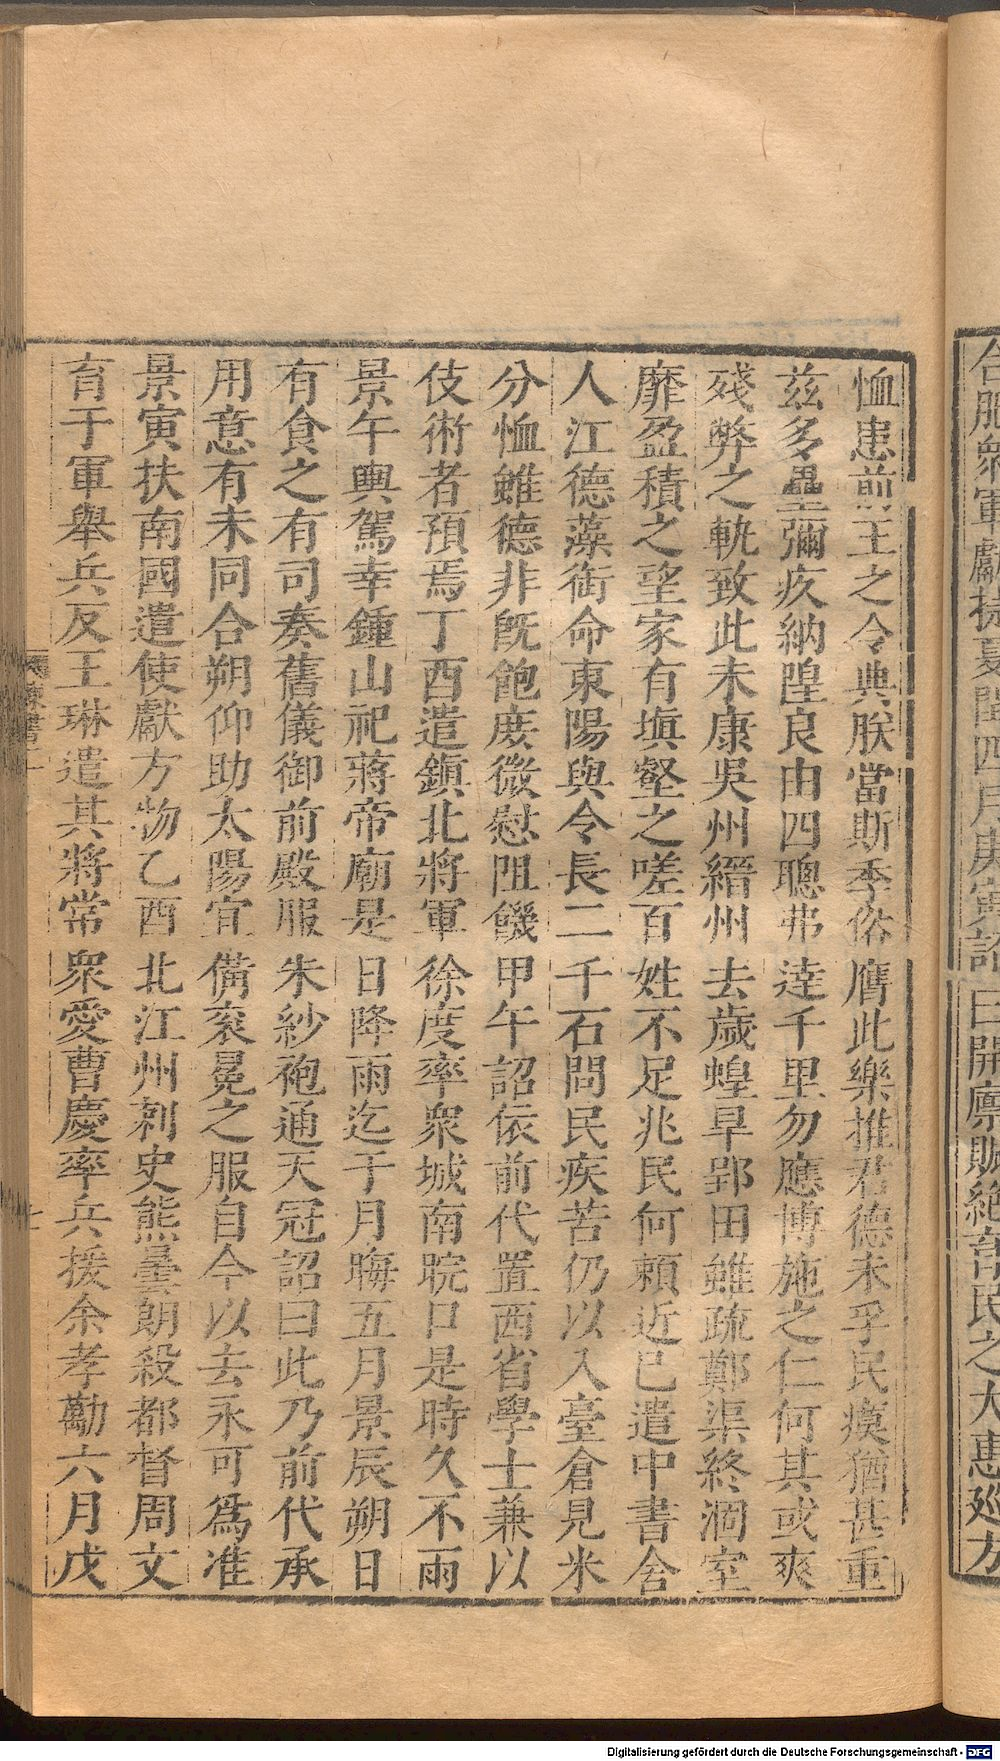 合肥眾軍獻捷夏閏四月庚寅詔曰開廩賑絕育民之大惠巡方
恤患前王之令典朕當斯季俗膺此樂推君德未孚民瘼猶甚重
茲多壘彌疚納隍良由四聰弗達千里勿應博施之仁何其或爽
殘弊之軌致此未康吳州縉州去歲蝗旱郢田雖疏鄭渠終涸室
靡盈積之望家有塡壑之嗟百姓不足兆民何賴近已遣中書舍
人江德藻銜命東陽與令長二千石問民疾苦仍以入臺倉見米
分恤雖德非旣飽庶微慰阻饑甲午詔依前代置西省學士兼以
伎術者預焉丁酉遣鎭北將軍徐度率衆城南皖口是時久不雨
景午輿駕幸鍾山祀蔣帝廟是日降雨迄于月晦五月景辰朔日
有食之有司奏舊儀御前殿服朱紗袍通天冠詔曰此乃前代承
用意有未同合朔仰助太陽宜備袞冕之服自今以去永可爲准
景寅扶南國遣使獻方物乙酉北江州刺史熊曇朗殺都督周文
育于軍舉兵反王琳遣其將常衆愛曹慶率兵援余孝勱六月戊
陳書二
Digitalisierung gefördert durch die Deutsche Forschungsgemeinschaft - DFG